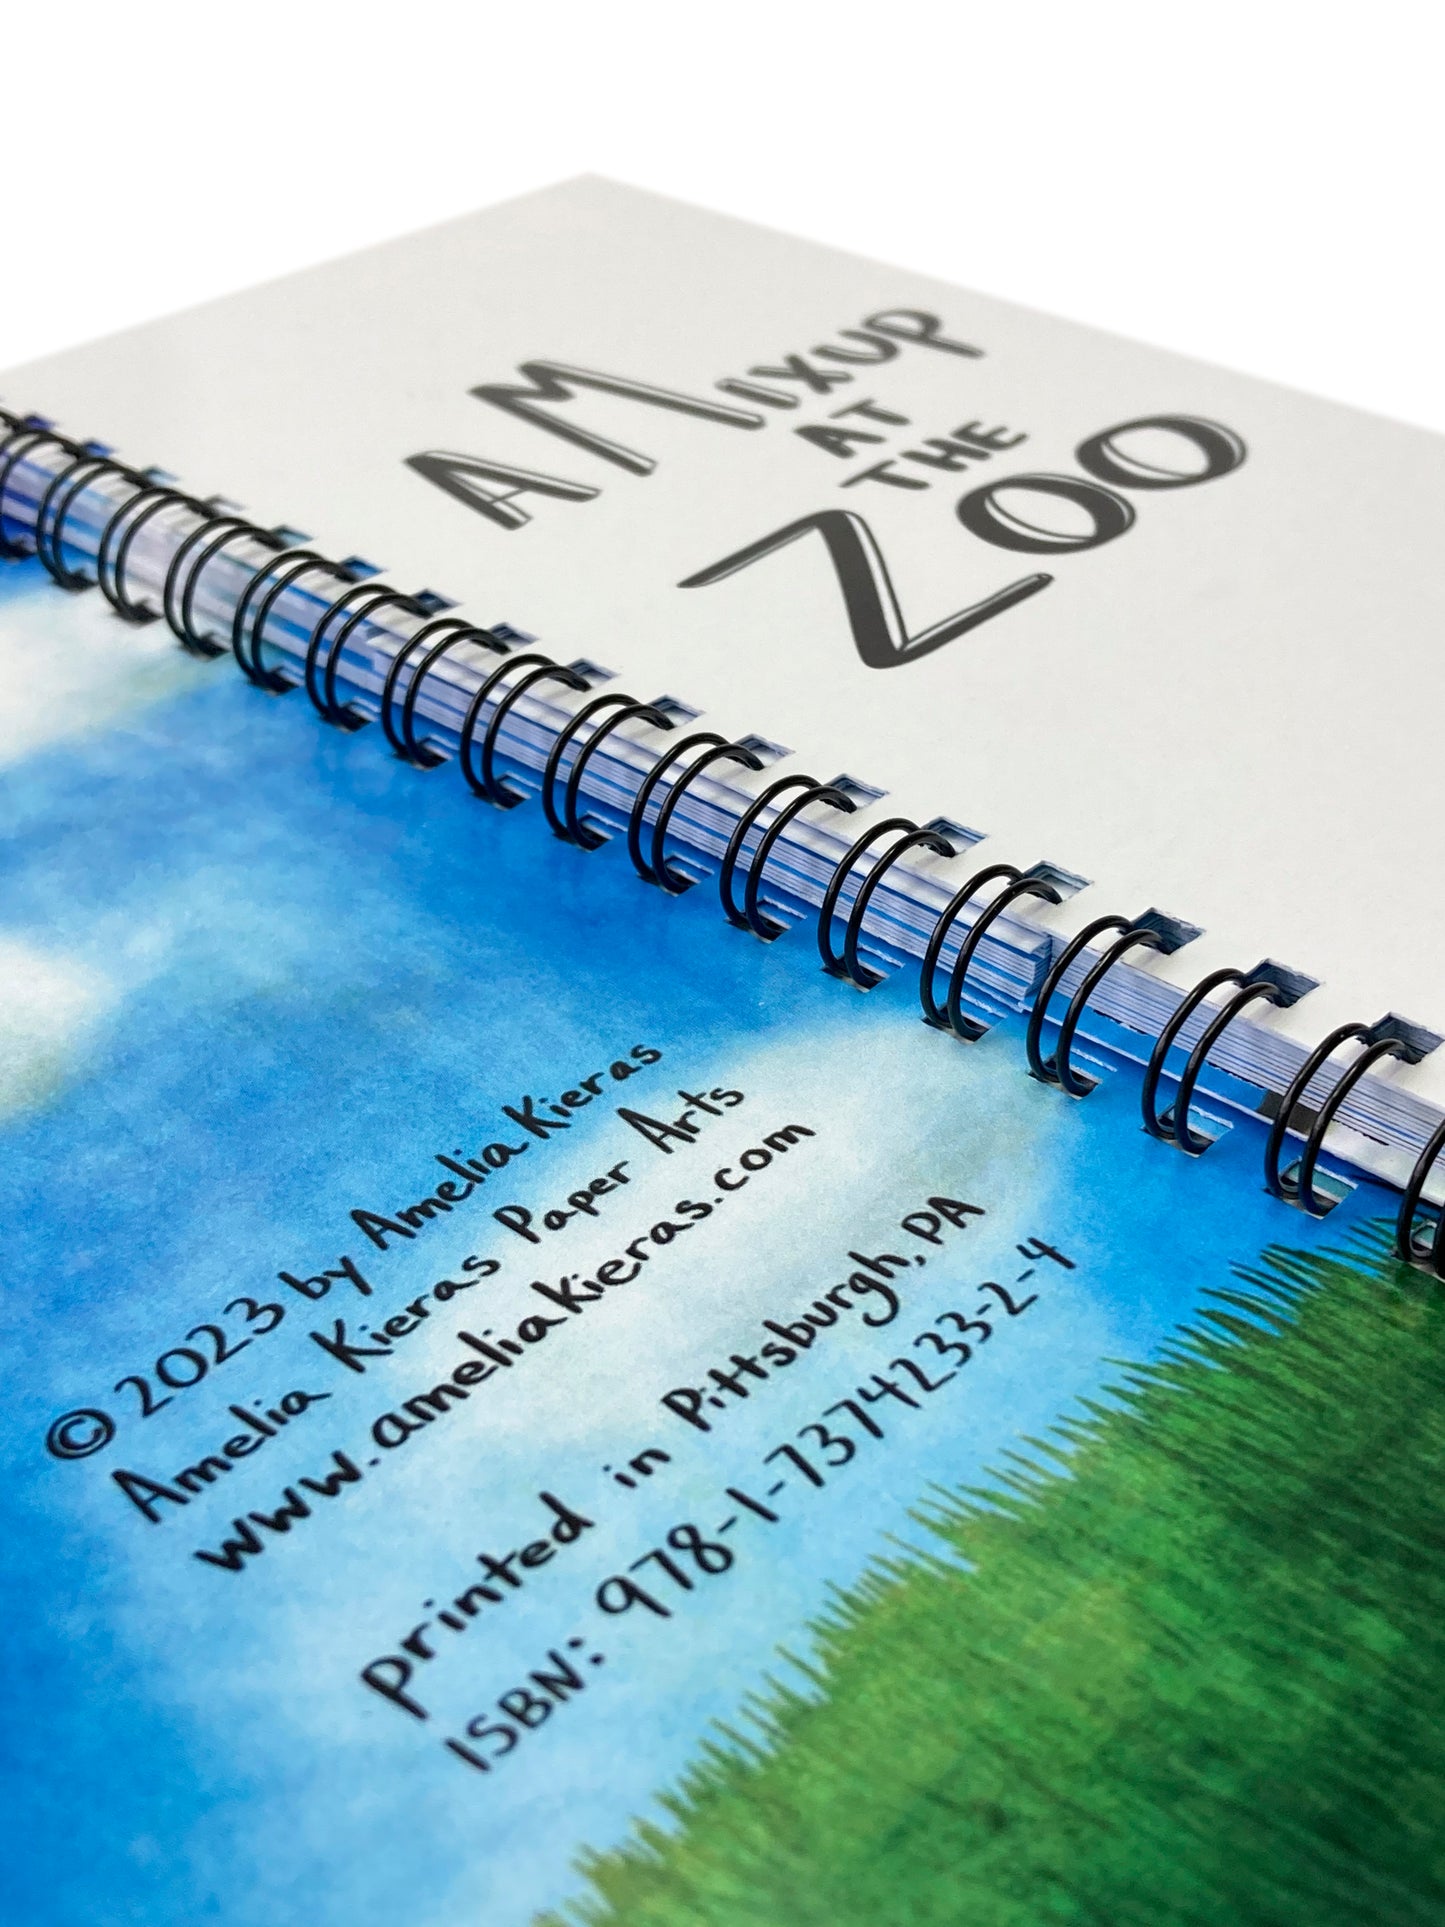 A MIXUP
AT
THE
ZOO
© 2023 by Amelia Kieras
Amelia Kieras Paper Arts
www.ameliakieras.com
printed in Pittsburgh, PA
ISBN: 978-1-7374233-2-4